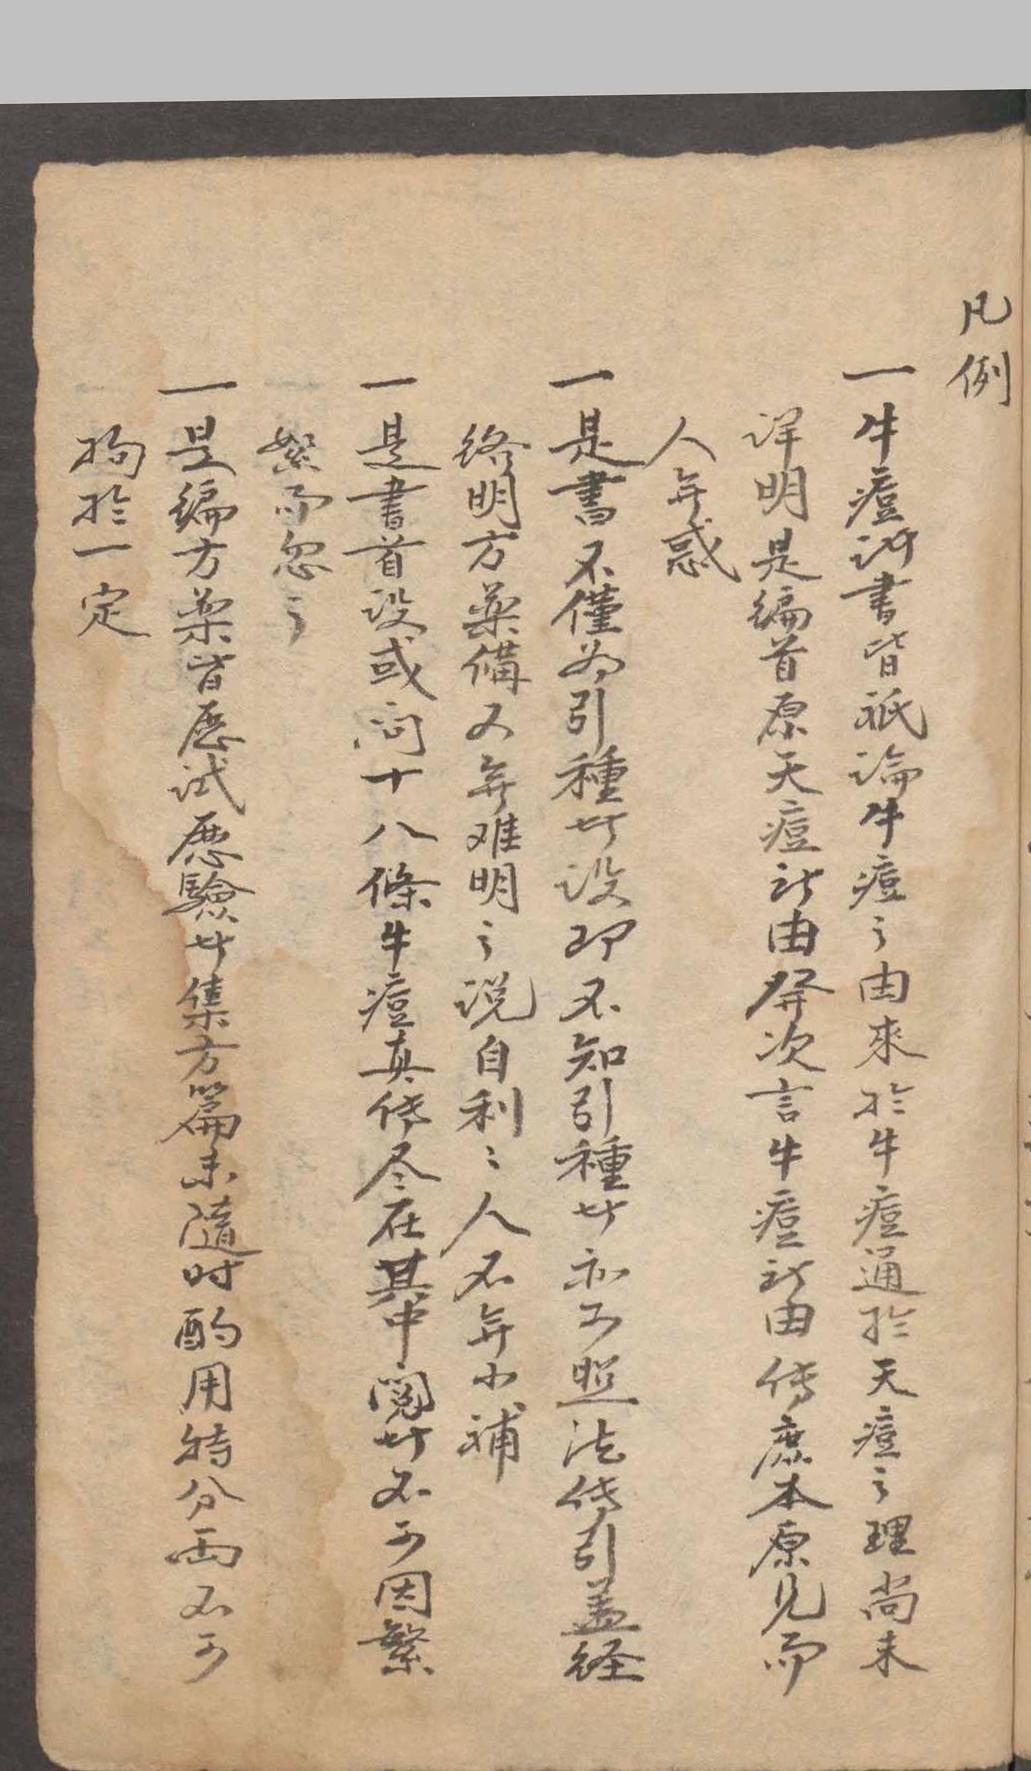 凡例
一牛痘諸書皆祇論牛痘之由來於牛痘通於天痘之理尚未
详明是編首原天痘所由発次言牛痘所由傳庶本原見而
人无惑
一是書不僅為引種者设即不知引種者亦可照法傳引盖経
络明方薬備又无难明之说自利利人不无小補
一是書首设或问十八條牛痘真傳尽在其中閲者不可因繁
絮而忽之
一是编方薬皆歷试歷驗者集方篇末隨时酌用特分両不可
拘於一定